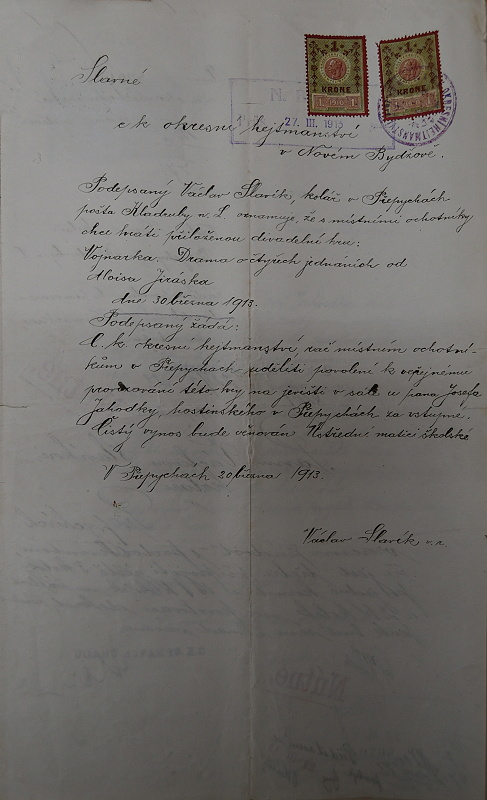 1
KRONE
1 1910 1
1
KRONE
27. III. 1913
Slavné
c k okresní hejtmanství
v Novém Bydžově.
Podepsaný Václav Slavík, kolář v Přepychách
pošta Kladruby n. L. oznamuje, že s místními ochotníky
chce hráti přiloženou divadelní hru:
Vojnarka. Drama o čtyřech jednáních od
Aloisa Jiráska
dne 30 března 1913.
Podepsaný žádá:
C. k. okresní hejtmanství, rač místním ochotní-
kům v Přepychách uděliti povolení k veřejnému
provozování této hry na jevišti v sále u pana Josefa
Jahodky, hostinského v Přepychách za vstupné.
Čistý výnos bude věnován Ústřední matici školské
V Přepychách 20 března 1913.
Václav Slavík